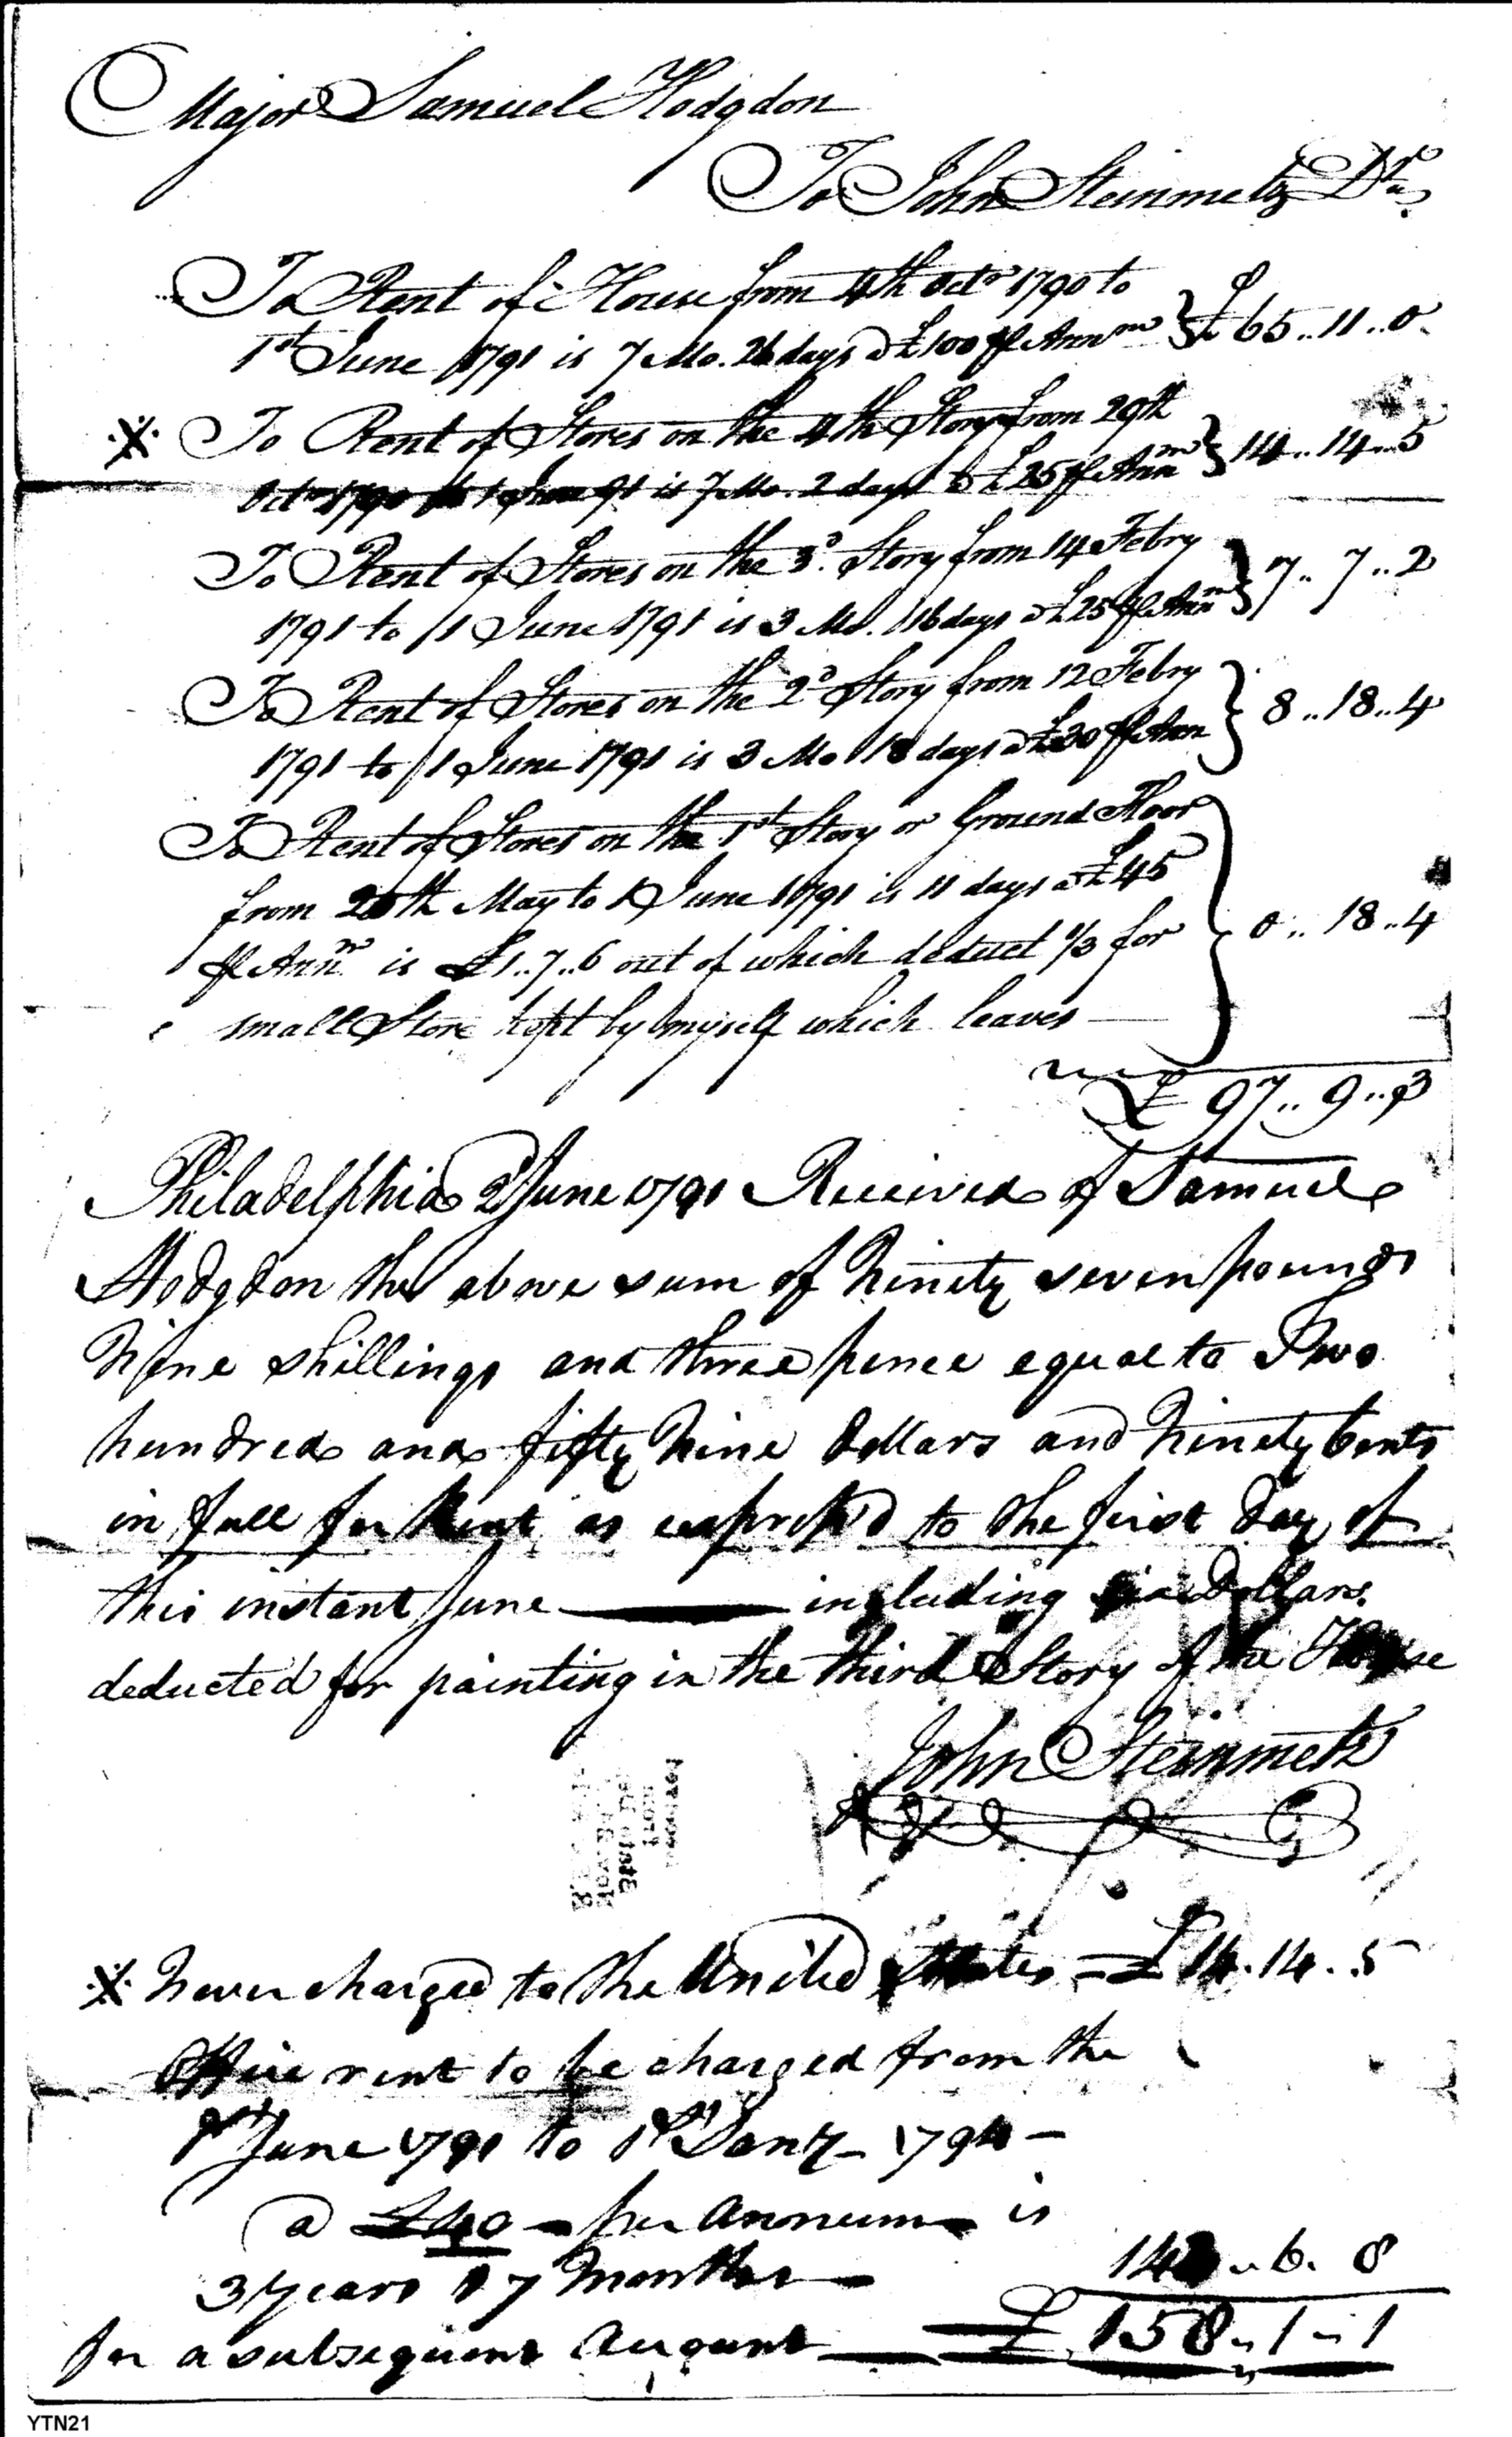 Major Samuel Hodgdon
To John Steinmetz Dr.
To Rent of House from 4th Octr 1790 to
1st June 1791 is 7 Mo. 26 days @ £100 ⅌ Annm } £ 65..11..0
※ To Rent of Stores on the 4th Story from 29th
Octr 1790 to 1 June 91 is 7 Mo. 2 days @ £25 ⅌ Annm } 14..14..5
To Rent of Stores on the 3d. Story from 14 Febry
1791 to 1 June 1791 is 3 Mo. 16 days @ £25 ⅌ Annm } 7..7..2
To Rent of Stores on the 2d Story from 12 Febry
1791 to 1 June 1791 is 3 Mo 18 days @ £30 ⅌ Ann } 8..18..4
To Rent of Stores on the 1st Story or Ground Floor
from 20th May to 1 June 1791 is 11 days @ £45
⅌ Annm is £1..7..6 out of which deduct 1/3 for } 0..18..4
small Store kept by myself which leaves
£ 97..9..3
Philadelphia 2d June 1791 Received of Samuel
Hodgdon the above sum of Ninety seven pounds
Nine shillings and three pence equal to Two
hundred and fifty Nine Dollars and Ninety Cents
in full for Rent as expressed to the first day of
this instant June — including six Dollars
deducted for painting in the third Story of the House
John Steinmetz
※ Never charged to the United States = £ 14.14..5
Office rent to be charged from the
1st June 1791 to 1st Jany - 1794 -
@ £40 - per annum is
3 years 7 Months - 143..6. 8
for a subsequent Account — £ 158..1..1
YTN21